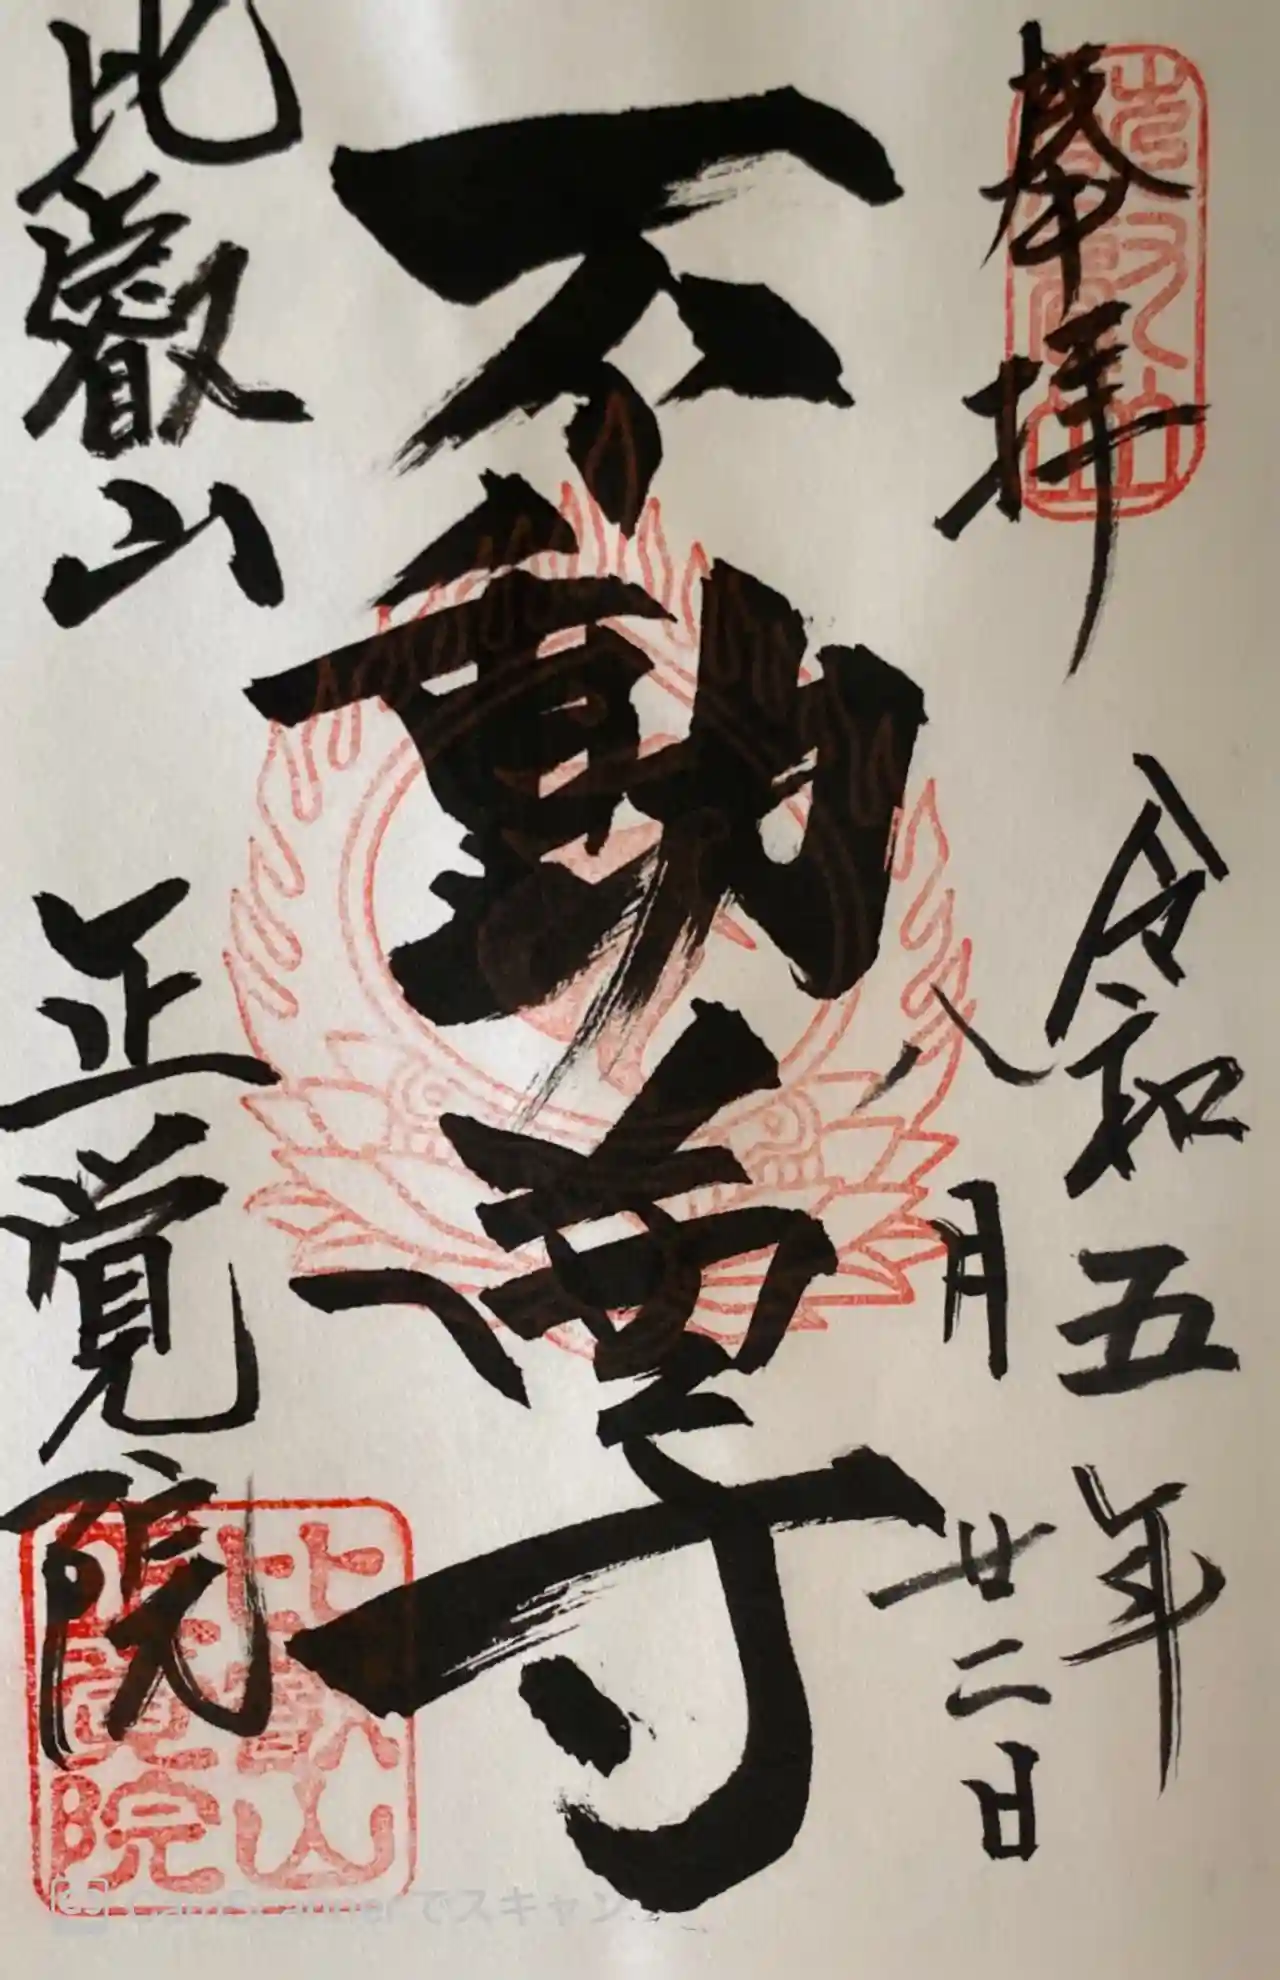 奉拝
令和五年
八月廿二日
不動尊
比叡山 正覚院
比叡山
正覚院
CamScannerでスキャン